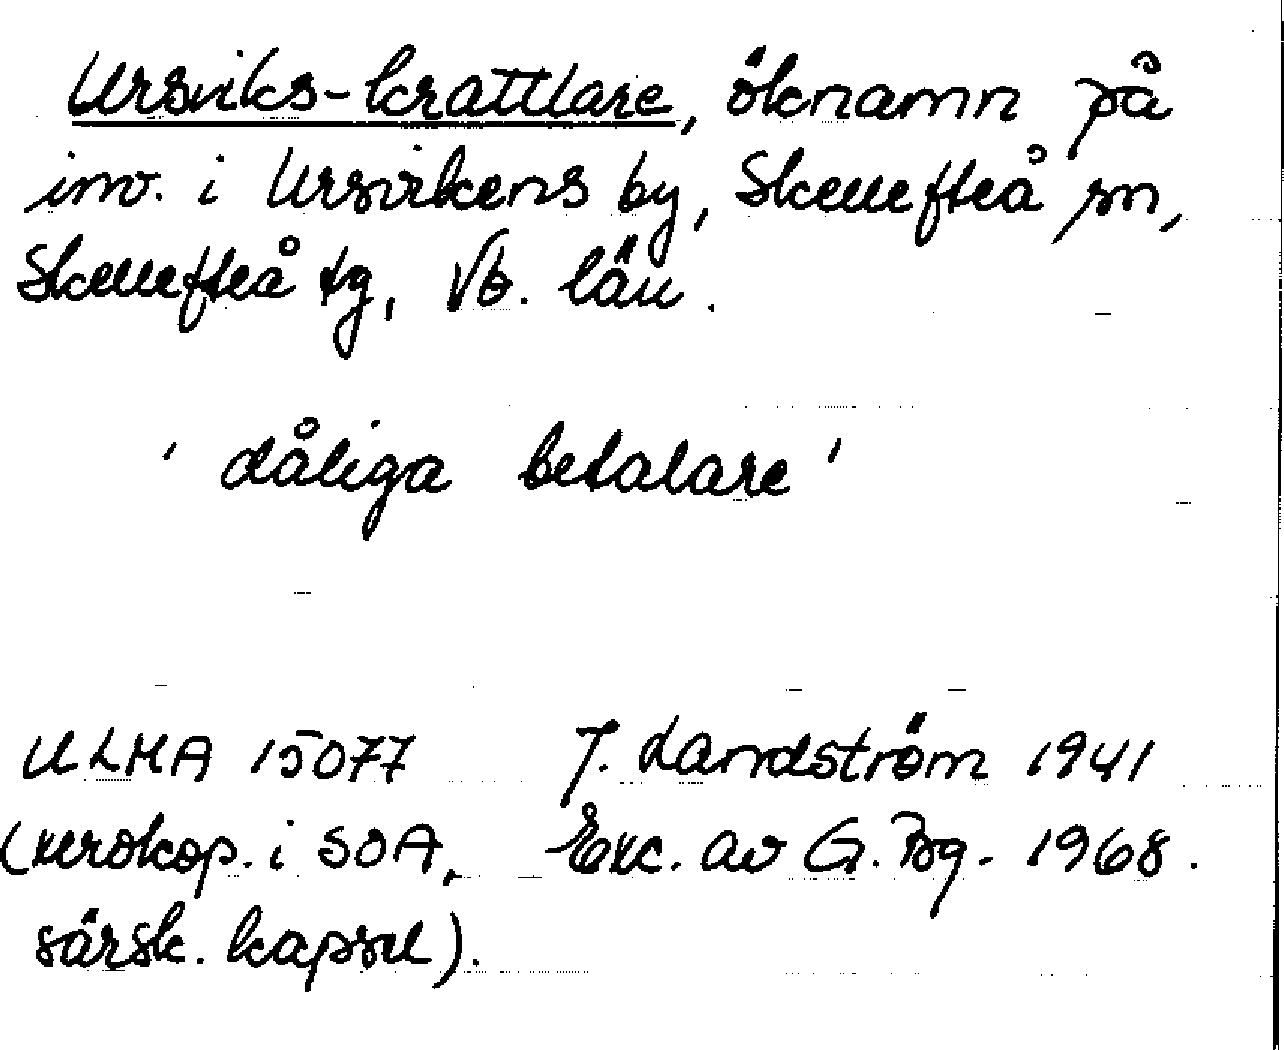 Ursviks-krattlare, öknamn på
inv. i Ursvikens by, Skellefteå sn,
Skellefteå tg, Vb. län.
' dåliga betalare '
ULMA 15077 J. Landström 1941
(xerokop. i SOA, Exc. av G. Bg. 1968.
särsk. kapsel).